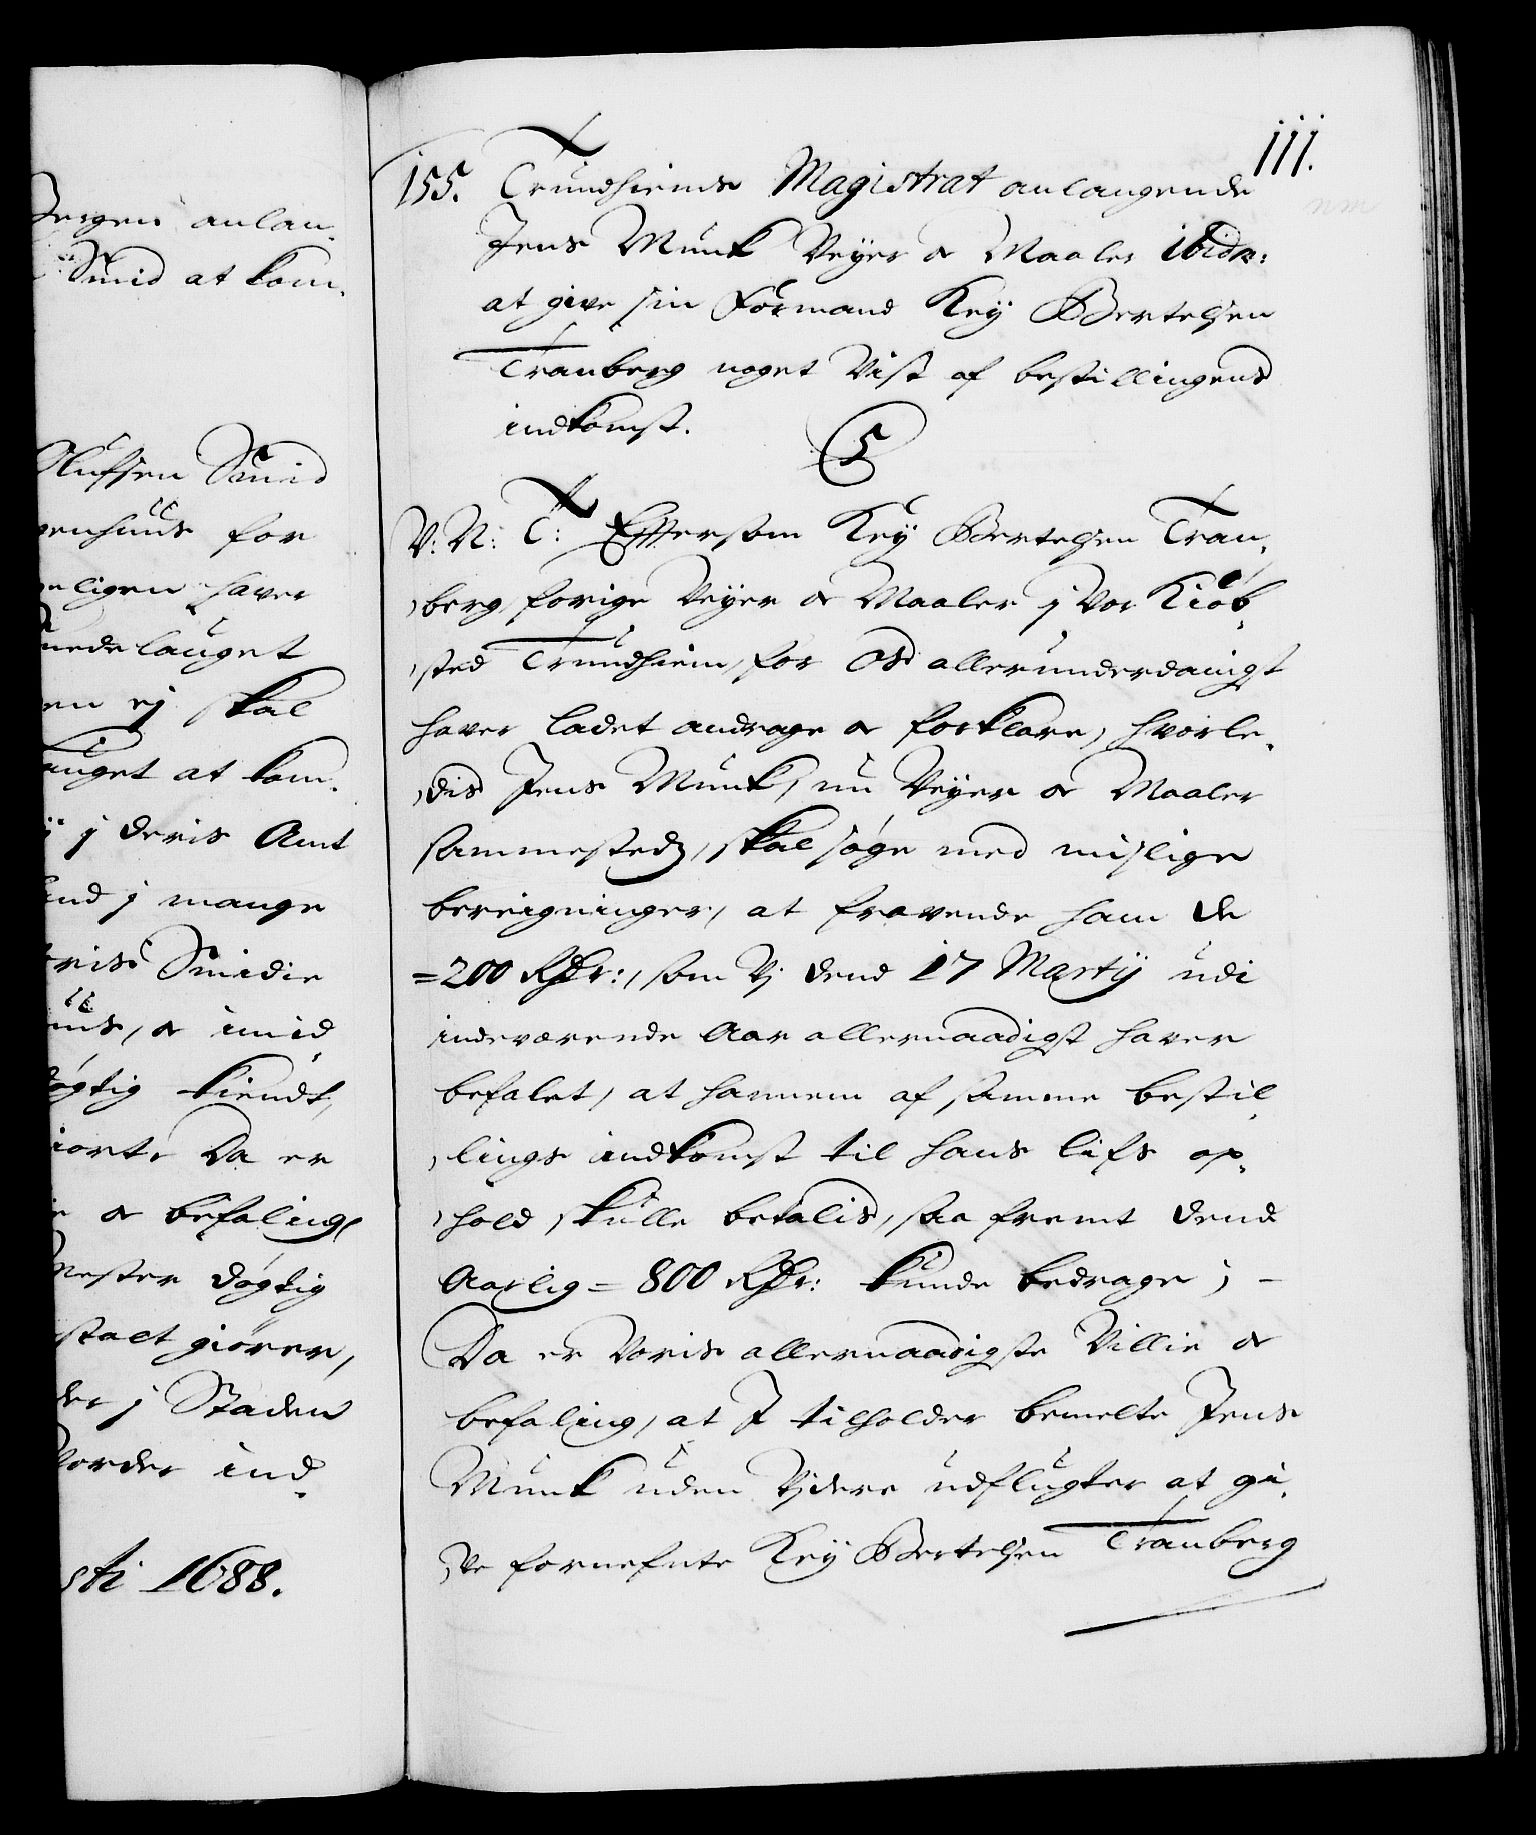 Bergen anlan-
Smid at kom-
Olufsen Smid
genhuus for
neligen haver
Smede lauget
en ej skal
lauget at kom-
j deris Amt
land j mange
deris Smidie
huus, og imid
døgtig kiendt,
giort, Da er
og befaling,
Mester døgtig
stalt giører,
der j Staden
Vorder ind-
sti 1688.
111.
155. Trundhiems Magistrat anlangende
Jens Munk Veyer og Maaler ibidm:
at give sin Formand Key Bertelsen
Tranberg noget Vist af bestillingens
indkomst.
C5
V: N: T: Eftersom Key Bertelsen Tran-
berg, forige Veyer og Maaler j Vor Kiøb-
sted Trundhiem, for Os allerunderdanigst
haver ladet andrage og forklare, hvorle-
dis Jens Munk, nu Veyer og Maaler
sammesteds, skal søge med mislige
beregninger, at fravende ham de
=200 Rdr:, som Vj dend 17 Martij udi
indeværende Aar allernaadigst haver
befalet, at hannem af samme bestil-
lings indkomst til hans lifs op-
hold skulle betalis, saa fremt dend
Aarlig = 800 Rdr: kunde bedrage; -
Da er Voris allernaadigste Villie og
befaling, at I tilholder bemelte Jens
Munk uden Vjdere udflugter at gi-
ve fornefnte Key Bertelsen Tranberg